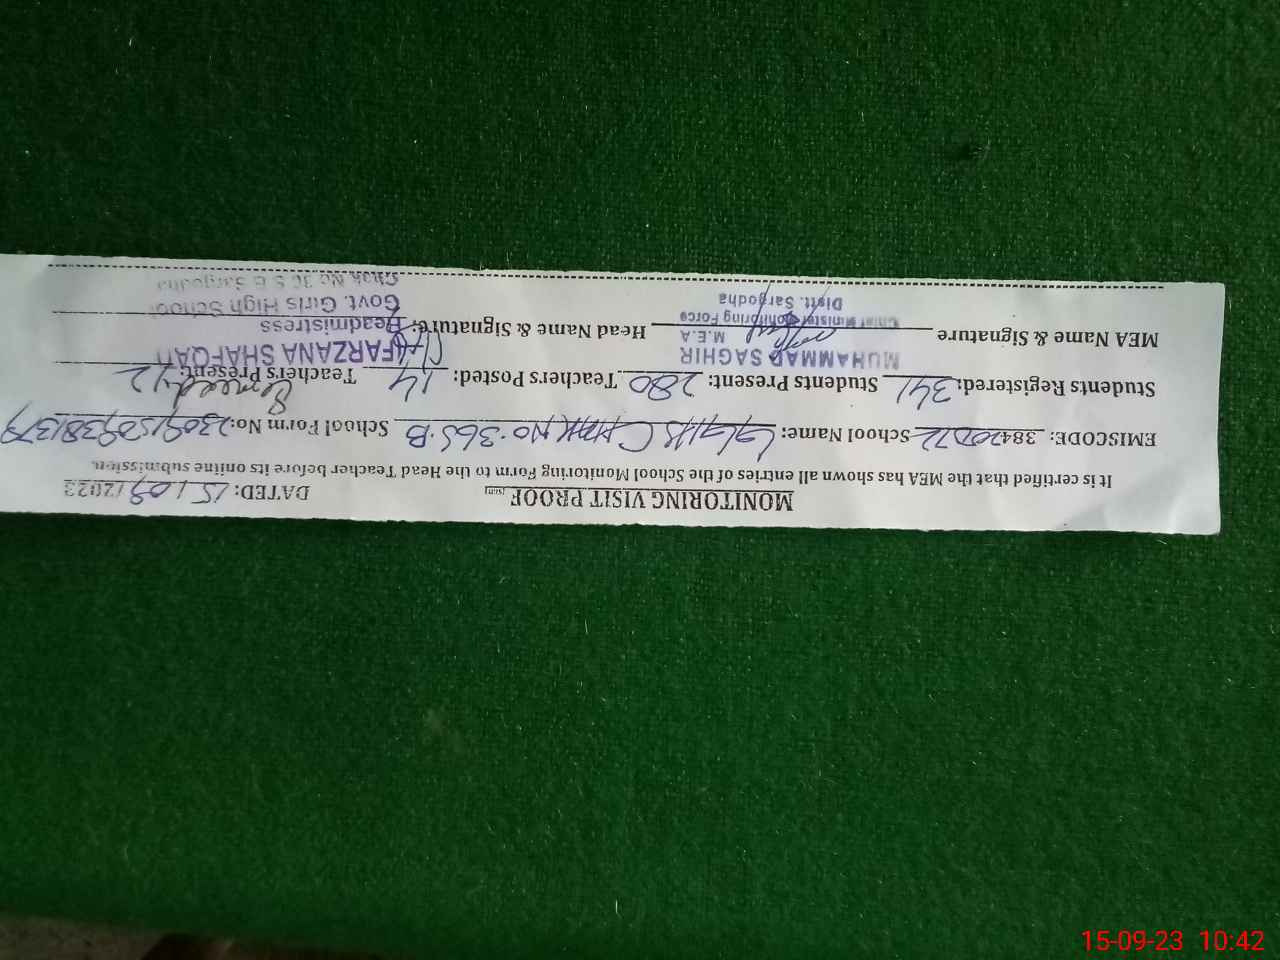 MONITORING VISIT PROOF DATED: 15/09/2023
It is certified that the MEA has shown all entries of the School Monitoring Form to the Head Teacher before its online submission.
EMISCODE: 38420072 School Name: GGHS CHAK NO. 36 S.B School Form No: 23091509381379
Students Registered: 341 Students Present: 280 Teachers Posted: 14 Teachers Present: 12
MEA Name & Signature Head Name & Signature:
MUHAMMAD SAGHIR
M.E.A
Chief Minister Monitoring Force
Distt. Sargodha
FARZANA SHAFQAT
Headmistress
Govt. Girls High School
Chak No 36 S B Sargodha
15-09-23 10:42